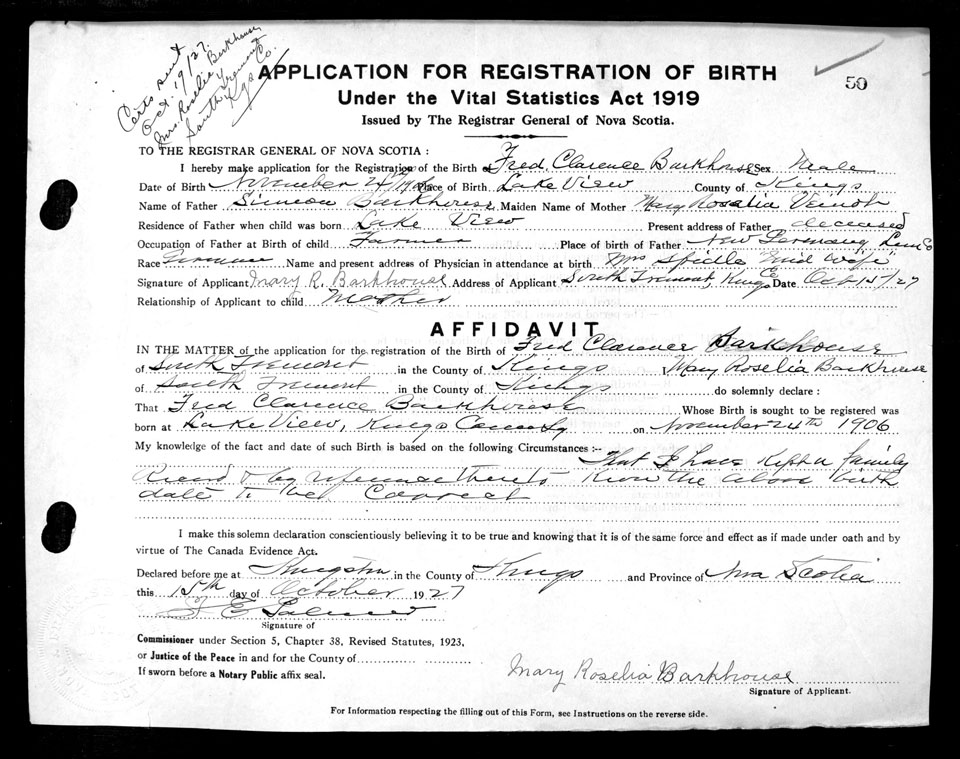 Certs sent
Oct. 19/27.
Mrs. Roselia Barkhouse
South Tremont
Kgs Co.
50
APPLICATION FOR REGISTRATION OF BIRTH
Under the Vital Statistics Act 1919
Issued by The Registrar General of Nova Scotia.
TO THE REGISTRAR GENERAL OF NOVA SCOTIA :
I hereby make application for the Registration of the Birth of Fred Clarence Barkhouse Sex Male
Date of Birth November 24th Place of Birth Lake View County of Kings
Name of Father Simeon Barkhouse Maiden Name of Mother Mary Rosalia Veinot
Residence of Father when child was born Lake View Present address of Father deceased
Occupation of Father at Birth of child Farmer Place of birth of Father New Germany
Race German Name and present address of Physician in attendance at birth Mrs Spidle mid wife
Signature of Applicant Mary R. Barkhouse Address of Applicant South Tremont, Kings Date Oct 15/27
Relationship of Applicant to child Mother
AFFIDAVIT
IN THE MATTER of the application for the registration of the Birth of Fred Clarence Barkhouse
of South Tremont in the County of Kings Mary Roselia Barkhouse
of South Tremont in the County of Kings do solemnly declare :
That Fred Clarence Barkhouse Whose Birth is sought to be registered was
born at Lake View, Kings County on November 24th 1906
My knowledge of the fact and date of such Birth is based on the following Circumstances :--
That I have Kept a family
Record & by reference thereto Know the above birth
date to be Correct
I make this solemn declaration conscientiously believing it to be true and knowing that it is of the same force and effect as if made under oath and by
virtue of The Canada Evidence Act.
Declared before me at Kingston in the County of Kings and Province of Nova Scotia
this 15th day of October 1927
Signature of
Commissioner under Section 5, Chapter 38, Revised Statutes, 1923,
or Justice of the Peace in and for the County of
If sworn before a Notary Public affix seal.
Mary Roselia Barkhouse
Signature of Applicant.
For Information respecting the filling out of this Form, see Instructions on the reverse side.